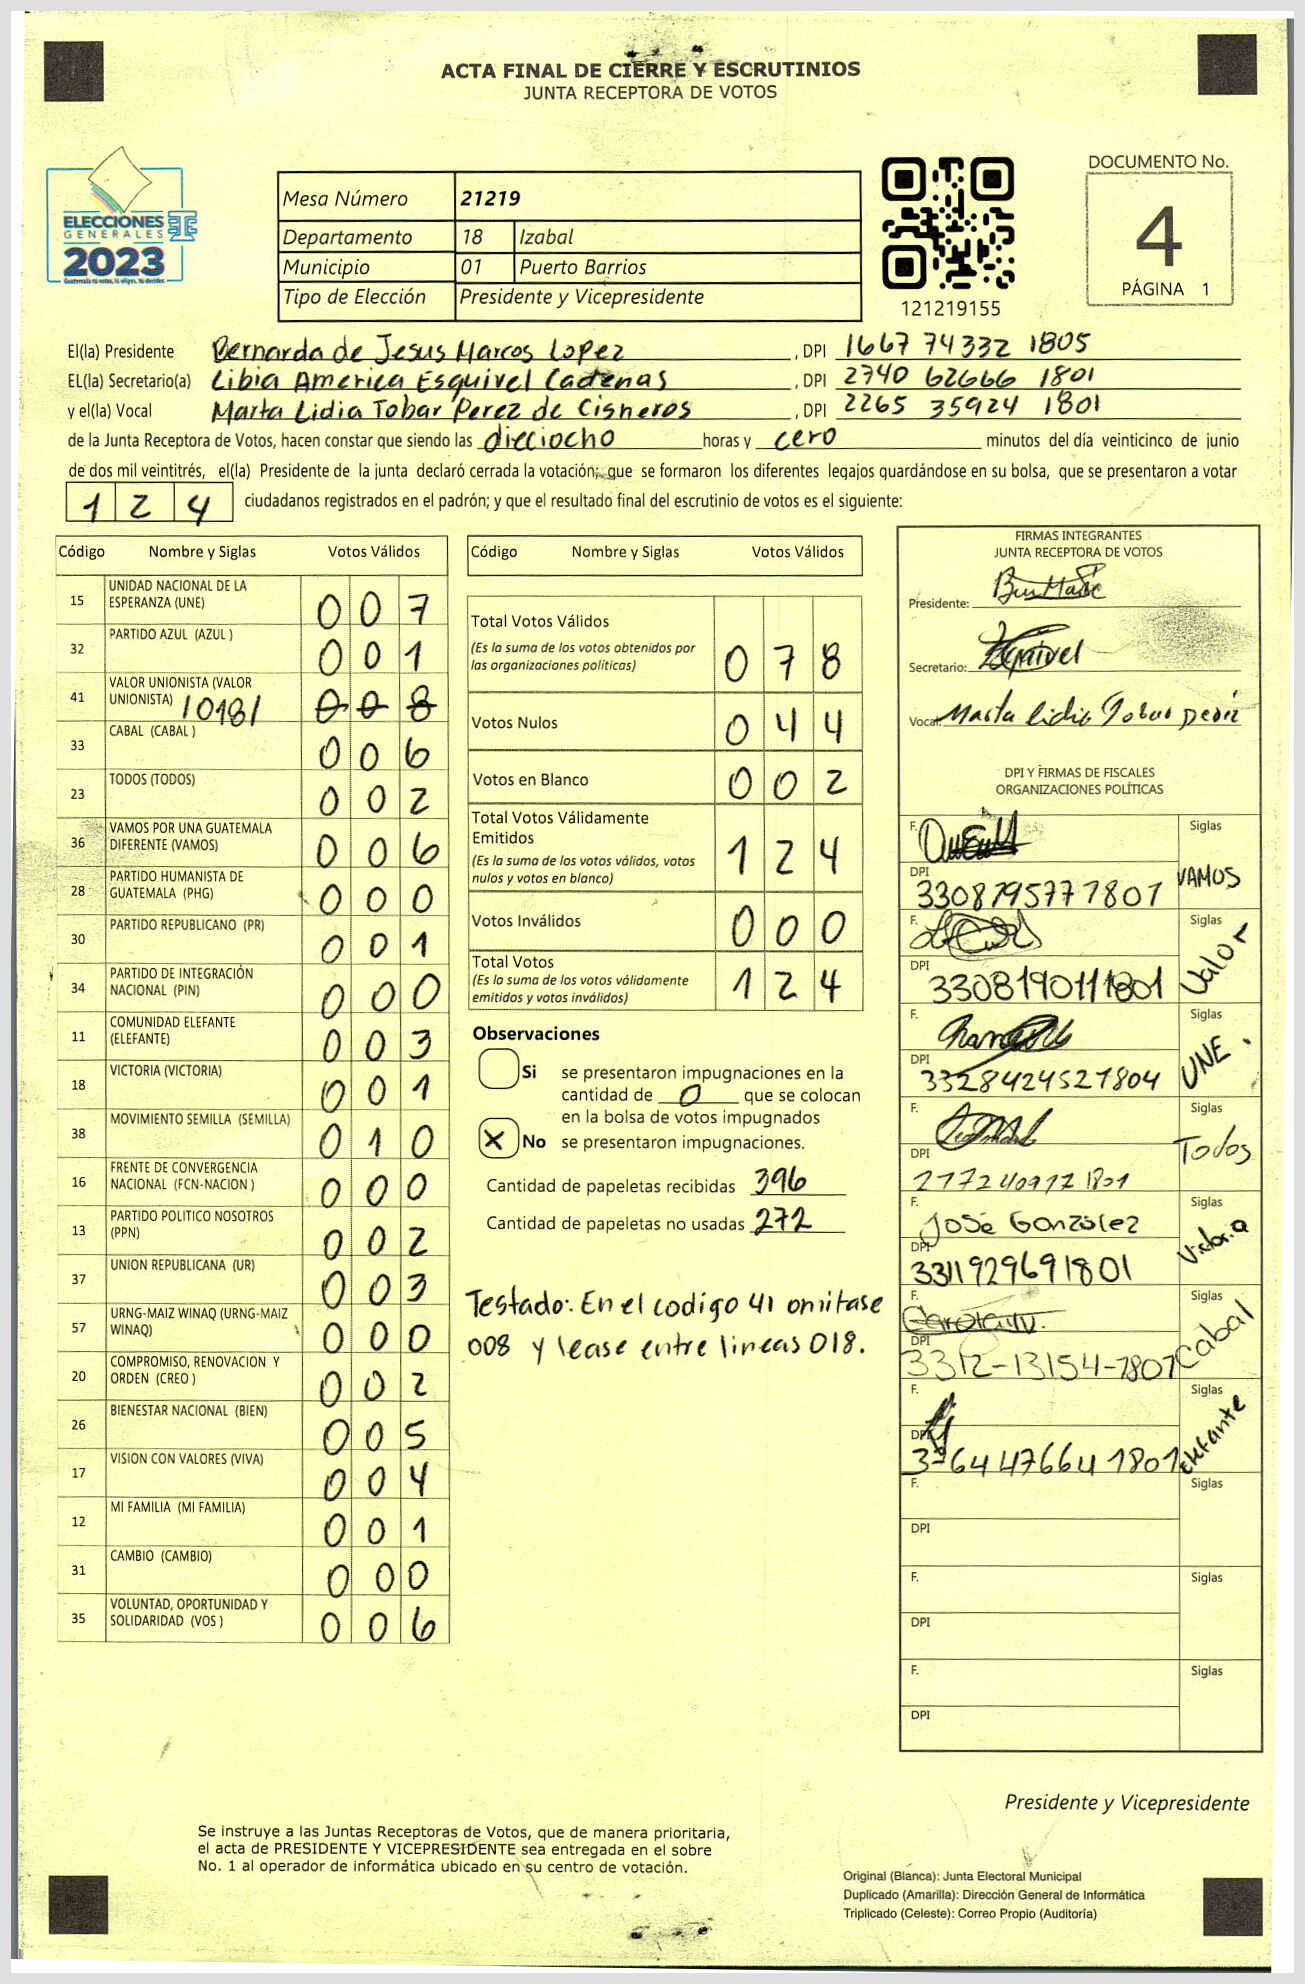 ACTA FINAL DE CIERRE Y ESCRUTINIOS
JUNTA RECEPTORA DE VOTOS
ELECCIONES
GENERALES
2023
Guatemala tú votas, tú eliges, tú decides
Mesa Número 21219
Departamento 18 Izabal
Municipio 01 Puerto Barrios
Tipo de Elección Presidente y Vicepresidente
121219155
DOCUMENTO No.
4
PÁGINA 1
El(la) Presidente Bernarda de Jesus Marcos Lopez , DPI 1667 74332 1805
EL(la) Secretario(a) Libia America Esquivel Cadenas , DPI 2740 62666 1801
y el(la) Vocal Marta Lidia Tobar Perez de Cisneros , DPI 2265 35924 1801
de la Junta Receptora de Votos, hacen constar que siendo las dieciocho horas y cero minutos del día veinticinco de junio
de dos mil veintitrés, el(la) Presidente de la junta declaró cerrada la votación; que se formaron los diferentes legajos guardándose en su bolsa, que se presentaron a votar
1 2 4 ciudadanos registrados en el padrón; y que el resultado final del escrutinio de votos es el siguiente:
Código Nombre y Siglas Votos Válidos
15 UNIDAD NACIONAL DE LA ESPERANZA (UNE) 0 0 7
32 PARTIDO AZUL (AZUL ) 0 0 1
41 VALOR UNIONISTA (VALOR UNIONISTA) /018/ 0 0 8
33 CABAL (CABAL ) 0 0 6
23 TODOS (TODOS) 0 0 2
36 VAMOS POR UNA GUATEMALA DIFERENTE (VAMOS) 0 0 6
28 PARTIDO HUMANISTA DE GUATEMALA (PHG) 0 0 0
30 PARTIDO REPUBLICANO (PR) 0 0 1
34 PARTIDO DE INTEGRACIÓN NACIONAL (PIN) 0 0 0
11 COMUNIDAD ELEFANTE (ELEFANTE) 0 0 3
18 VICTORIA (VICTORIA) 0 0 1
38 MOVIMIENTO SEMILLA (SEMILLA) 0 1 0
16 FRENTE DE CONVERGENCIA NACIONAL (FCN-NACION ) 0 0 0
13 PARTIDO POLITICO NOSOTROS (PPN) 0 0 2
37 UNION REPUBLICANA (UR) 0 0 3
57 URNG-MAIZ WINAQ (URNG-MAIZ WINAQ) 0 0 0
20 COMPROMISO, RENOVACION Y ORDEN (CREO ) 0 0 2
26 BIENESTAR NACIONAL (BIEN) 0 0 5
17 VISION CON VALORES (VIVA) 0 0 4
12 MI FAMILIA (MI FAMILIA) 0 0 1
31 CAMBIO (CAMBIO) 0 0 0
35 VOLUNTAD, OPORTUNIDAD Y SOLIDARIDAD (VOS ) 0 0 6
Código Nombre y Siglas Votos Válidos
Total Votos Válidos
(Es la suma de los votos obtenidos por
las organizaciones políticas) 0 7 8
Votos Nulos 0 4 4
Votos en Blanco 0 0 2
Total Votos Válidamente
Emitidos
(Es la suma de los votos válidos, votos
nulos y votos en blanco) 1 2 4
Votos Inválidos 0 0 0
Total Votos
(Es la suma de los votos válidamente
emitidos y votos inválidos) 1 2 4
Observaciones
Si se presentaron impugnaciones en la
cantidad de 0 que se colocan
en la bolsa de votos impugnados
X No se presentaron impugnaciones.
Cantidad de papeletas recibidas 396
Cantidad de papeletas no usadas 272
Testado: En el codigo 41 omitase
008 y lease entre lineas 018.
FIRMAS INTEGRANTES
JUNTA RECEPTORA DE VOTOS
Presidente:
Secretario: Esquivel
Vocal: Marta Lidia Tobar Perez
DPI Y FIRMAS DE FISCALES
ORGANIZACIONES POLÍTICAS
F. Siglas
DPI 3308795771801 VAMOS
F. Siglas
DPI 3308190111801 Valor
F. Siglas
DPI 3328424521804 UNE.
F. Siglas
DPI 2172409721801 Todos
F. José González Siglas
DPI 3311929691801 Victoria
F. Siglas
DPI 3312-13154-1801 Cabal
F. Siglas
DPI 3764476641801 elefante
F. Siglas
DPI
F. Siglas
DPI
F. Siglas
DPI
Presidente y Vicepresidente
Se instruye a las Juntas Receptoras de Votos, que de manera prioritaria,
el acta de PRESIDENTE Y VICEPRESIDENTE sea entregada en el sobre
No. 1 al operador de informática ubicado en su centro de votación.
Original (Blanca): Junta Electoral Municipal
Duplicado (Amarilla): Dirección General de Informática
Triplicado (Celeste): Correo Propio (Auditoría)